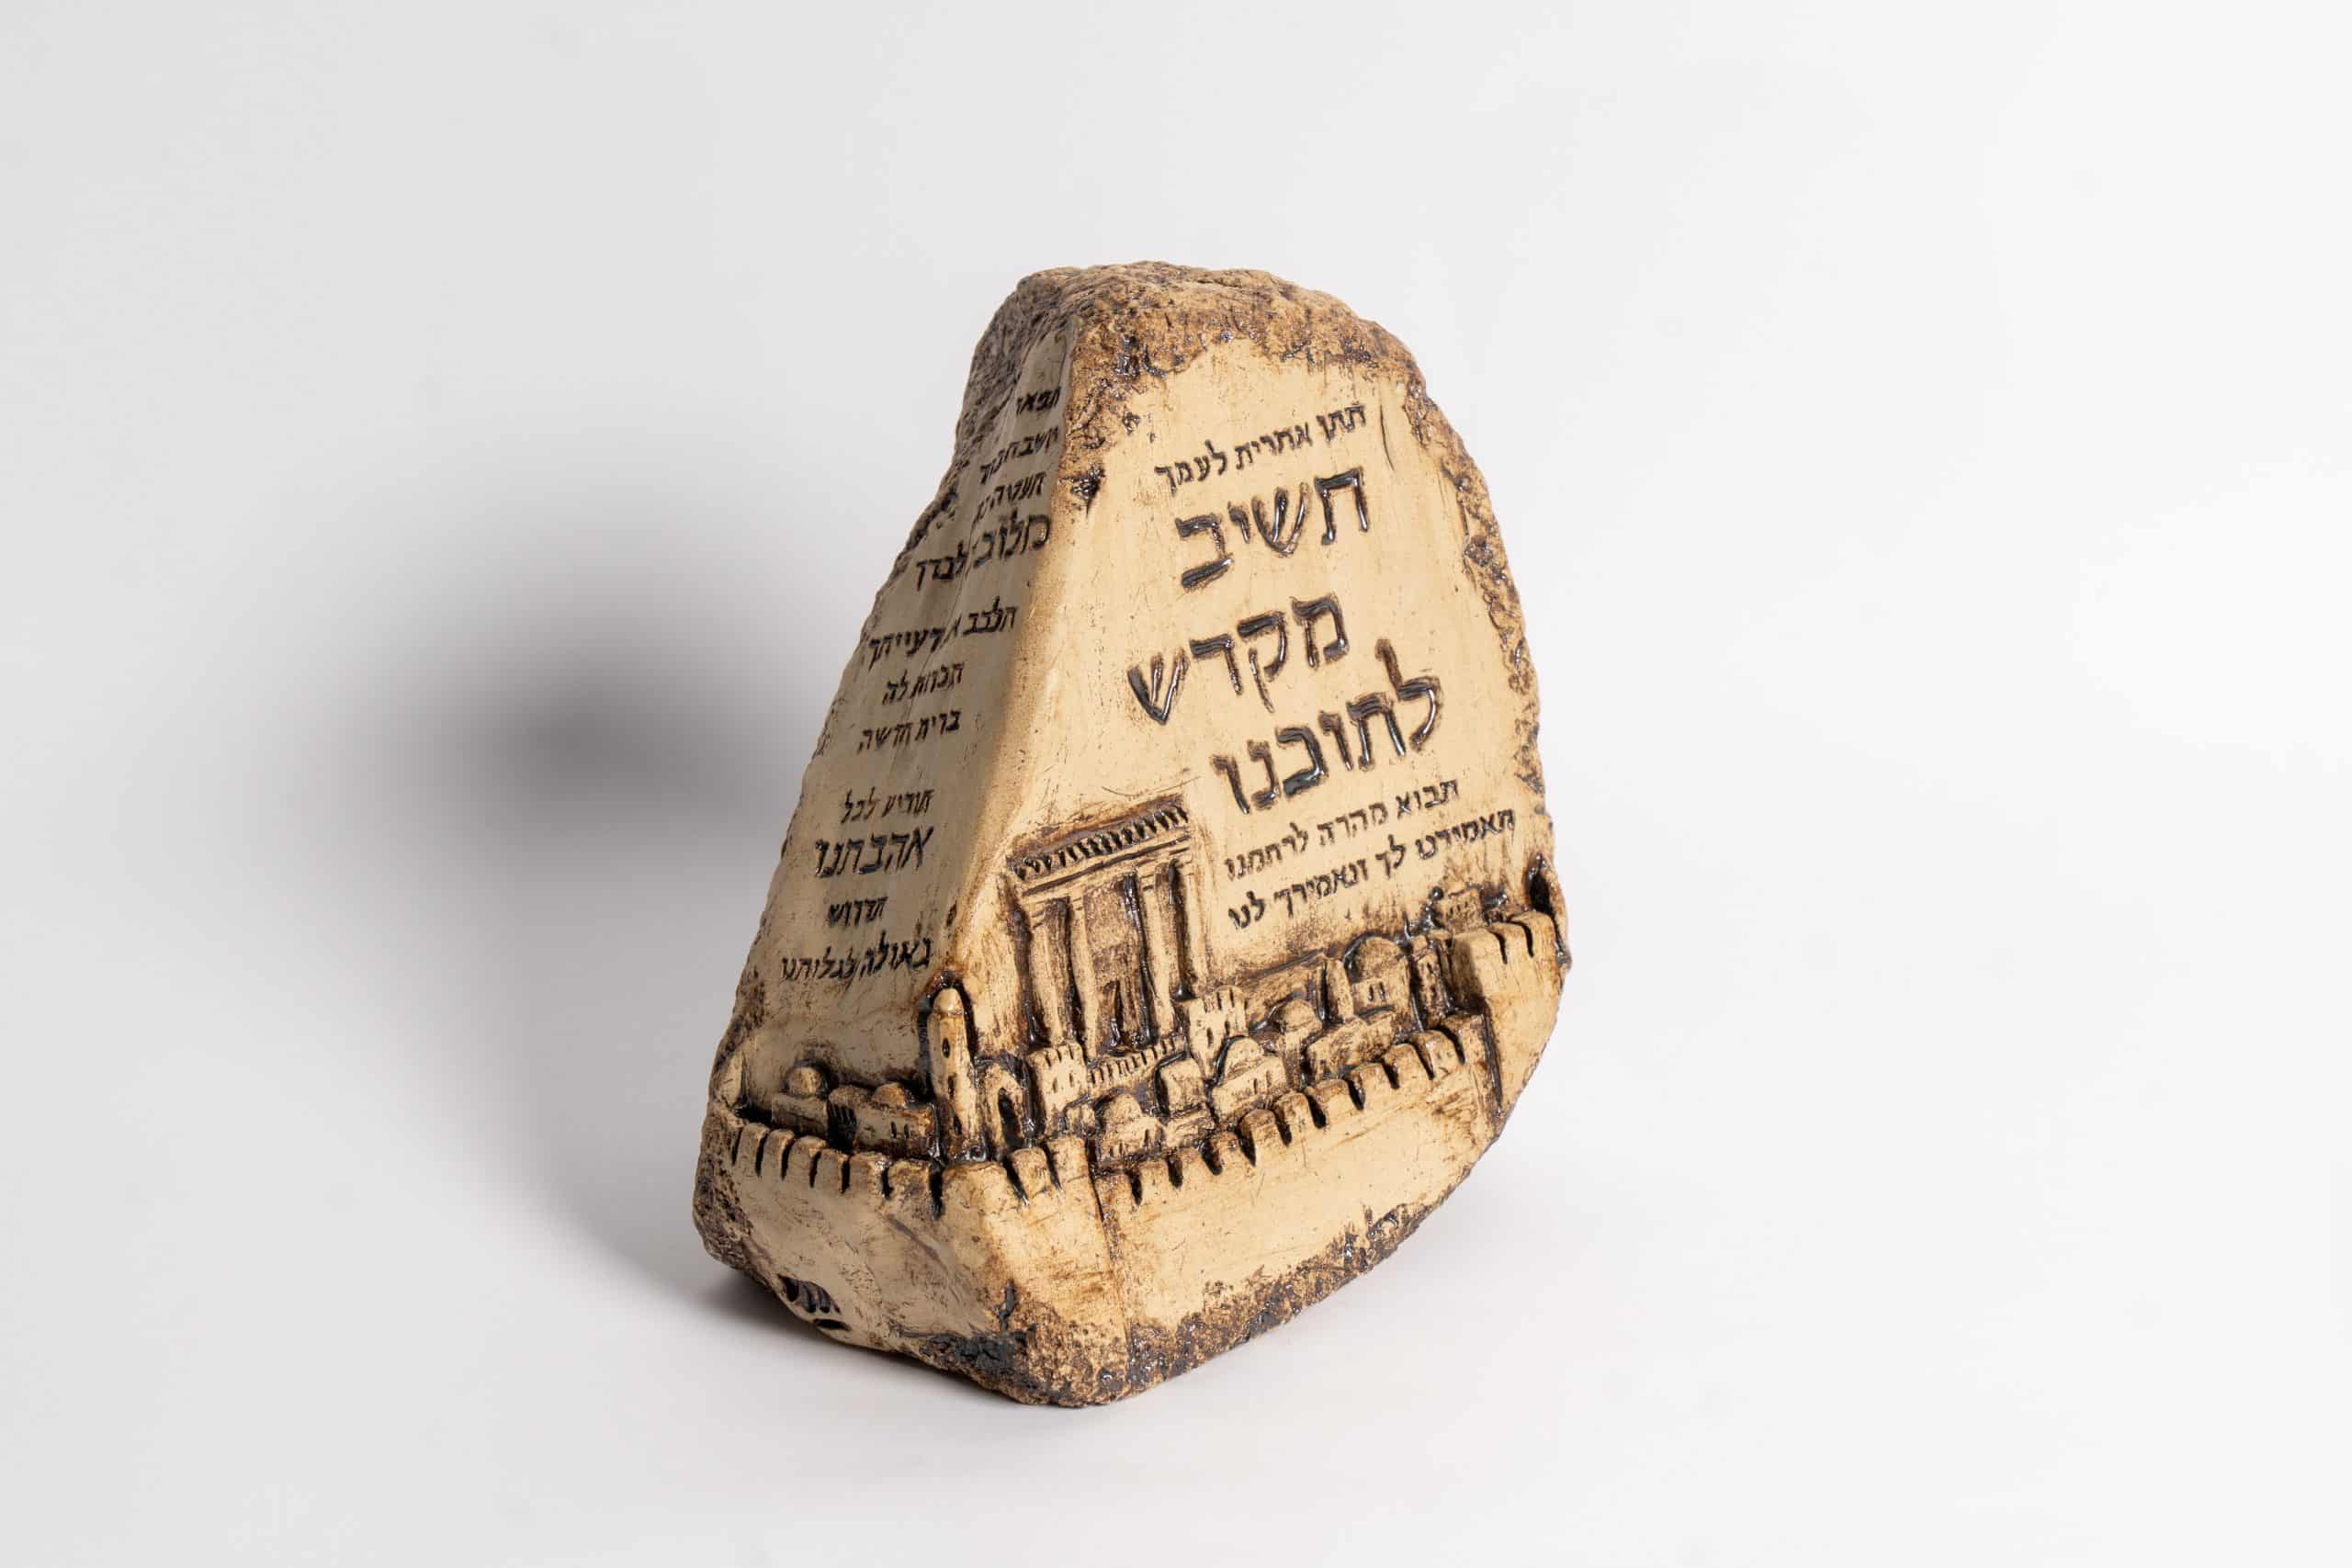 תתן אחרית לעמך
תשיב
מקדש
לתוכנו
תבוא מהרה לרחמנו
תאמירנו לך ונאמירך לנו
תפאר
תעטה
מלוכה לבדך
תלבב רעייתך
תכרות לה
ברית חדשה
תודיע לכל
אהבתנו
תדרוש
גאולה לגלותנו